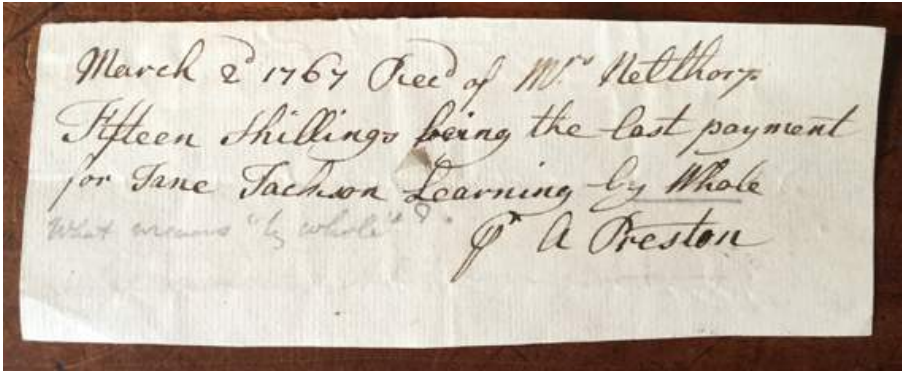 March 2d 1767 Recd of Mrs Nelthorp
Fifteen Shillings being the last payment
for Jane Jackson Learning by Whole
What means "by whole"?
pr A Preston